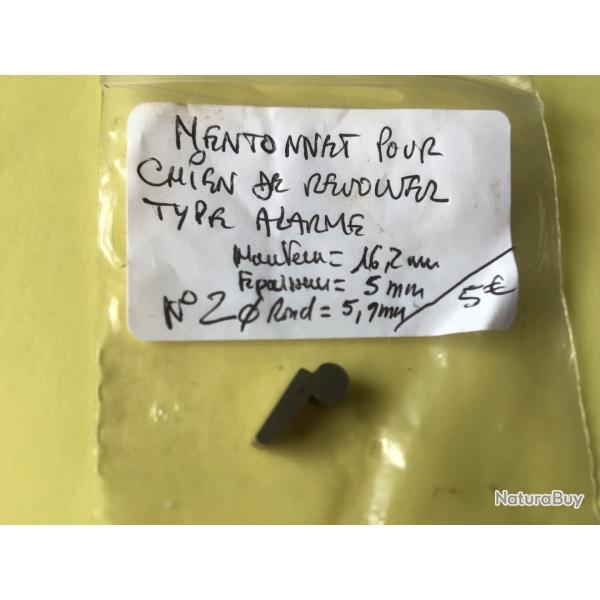 MENTONNET POUR
CHIEN DE REVOLVER
TYPE ALARME
Hauteur = 16,2 mm
Epaisseur = 5 mm
N° 2 Ø Rond = 5,9 mm
5€
NaturaBuy